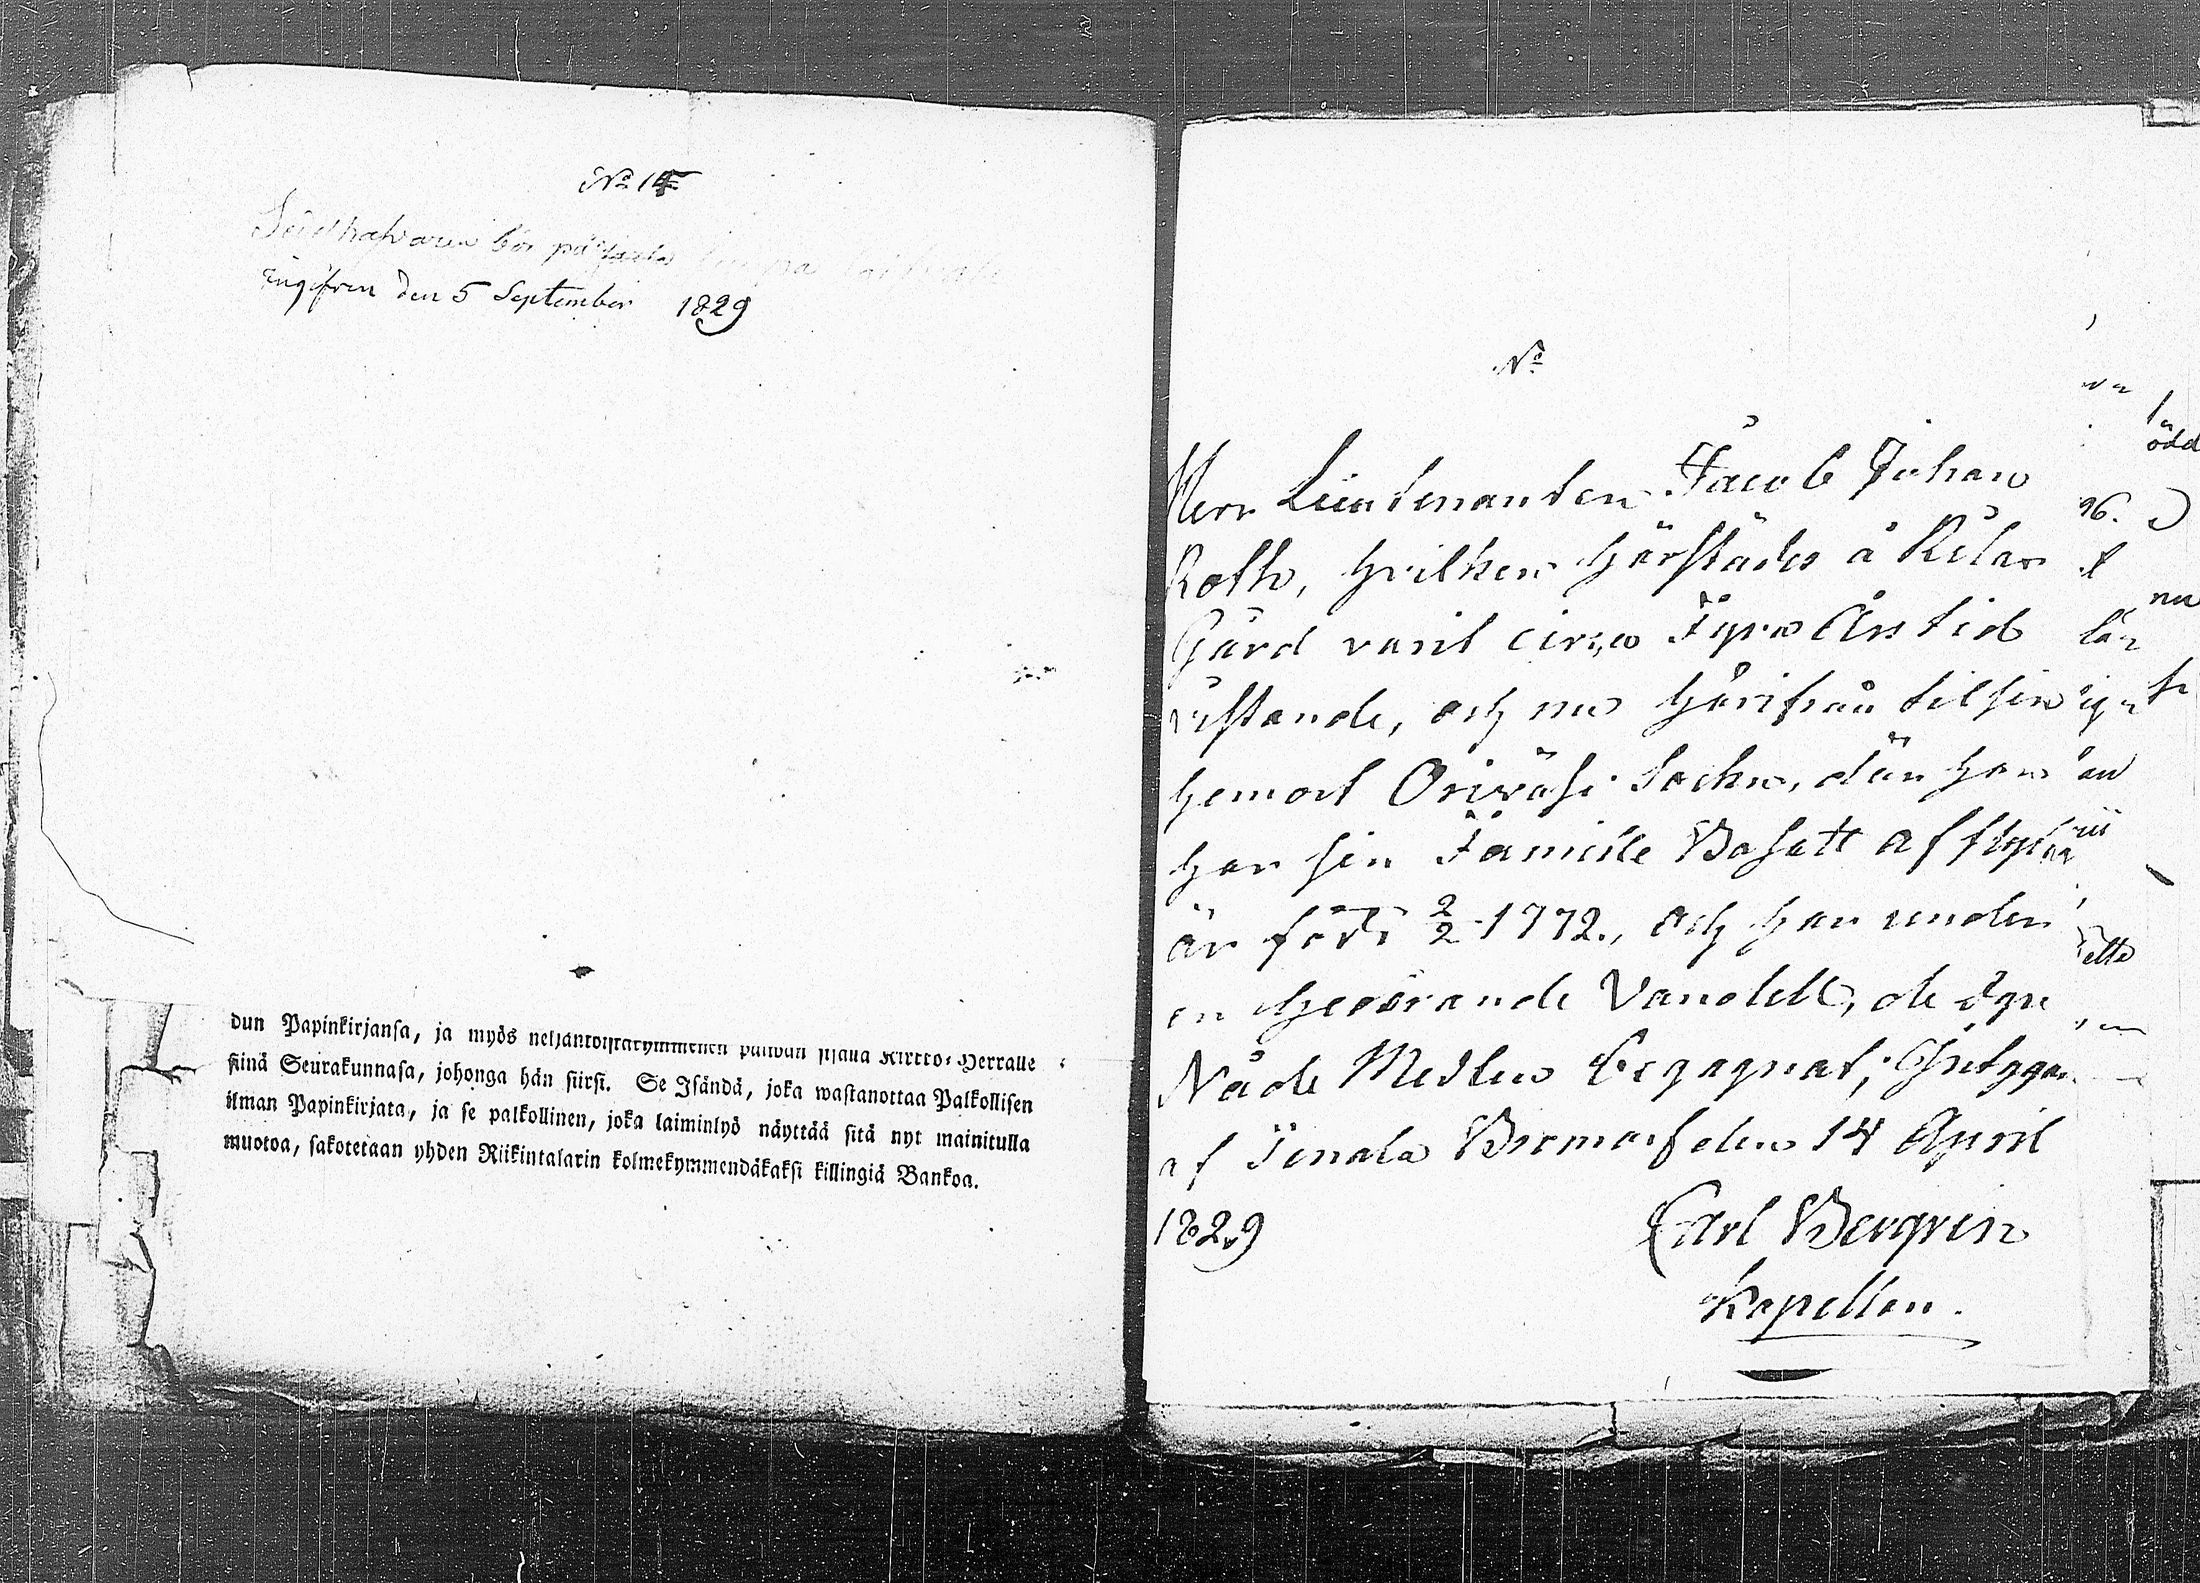 No 14
bör på
Ingifven den 5 September 1829
dun Papinkirjansa, ja myös neljäntoistakymmenen päiwän sisällä Kirkko-Herralle
siinä Seurakunnasa, johonga hän siirsi. Se Isändä, joka wastanottaa Palkollisen
ilman Papinkirjata, ja se palkollinen, joka laiminlyö näyttää sitä nyt mainitulla
muotoa, sakotetaan yhden Riikintalarin kolmekymmendäkaksi killingiä Bankoa.
No
Herr Lieutenanten Jacob Johan
Roth, hvilken härstädes å Rilax
Gård varit circa Fyra Års tid
vistande, och nu härifrån til sin
hemort Oriväsi Sockn, där han
har sin Familie Bosatt afflyttar
är född 2/2 1772., och har under
en hedrande Vandell, de
Nåde Medlen begagnat;
af Tenala Bromarf den 14 April
1829
Carl Bergren
Kapellan.